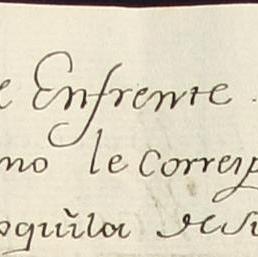 e Enfrente
no le Corresp
oquila de su